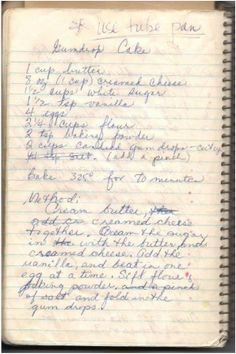 * Use tube pan
Gumdrop Cake
1 cup butter
8 oz (1 cup) creamed cheese
1 1/2 cups white sugar
1 1/2 tsp vanilla
4 eggs
2 1/4 cups flour
2 tsp baking powder
2 cups candied gum drops - cut up
salt (add a pinch)
Bake 325° for 70 minutes
Method:
Cream butter,
and creamed cheese
together. Cream the sugar
in with the butter and
creamed cheese. Add the
vanilla, and beat in one
egg at a time. Sift flour
baking powder, and a pinch
of salt and fold in the
gum drops.